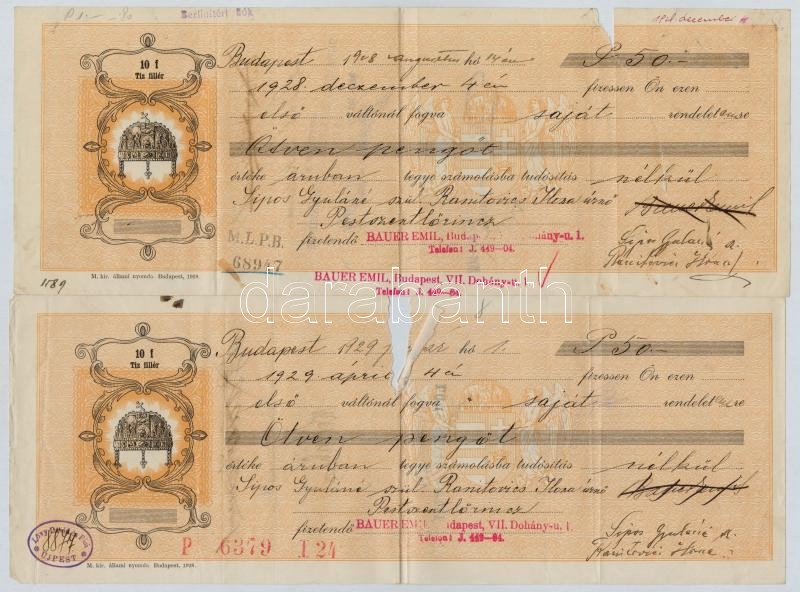 Berlinitéri fiók
1928 december
10 f
Tiz fillér
Budapest 1928 augusztus hó 14 én P 50.-
1928. deczember 4 én fizessen Ön ezen
első váltónál fogva saját rendeletemre
Ötven pengőt
értéke áruban tegye számolásba tudósítás nélkül
Sipos Gyuláné szül. Ranitovics Ilona úrnő
Pestszentlőrincz
Bauer Emil
M.L.P.B.
68947
fizetendő BAUER EMIL, Budapest, Dohány-u. 1.
Telefon: J. 449-04.
Sipos Gyuláné
Ranitovics Ilona
1189
M. kir. állami nyomda. Budapest, 1928.
BAUER EMIL, Budapest, VII. Dohány-u. 1.
Telefon: J. 449-04.
darabanth
8
10 f
Tiz fillér
Budapest 1929 hó 1. P 50.-
1929. április 4 én fizessen Ön ezen
első váltónál fogva saját rendeletemre
Ötven pengőt
értéke áruban tegye számolásba tudósítás nélkül
Sipos Gyuláné szül. Ranitovics Ilona úrnő
Pestszentlőrincz
fizetendő BAUER EMIL, Budapest, VII. Dohány-u. 1.
Telefon: J. 449-04.
Sipos Gyuláné
Ranitovics Ilona
8877
ÚJPEST
P 6379 I 24
M. kir. állami nyomda. Budapest, 1928.